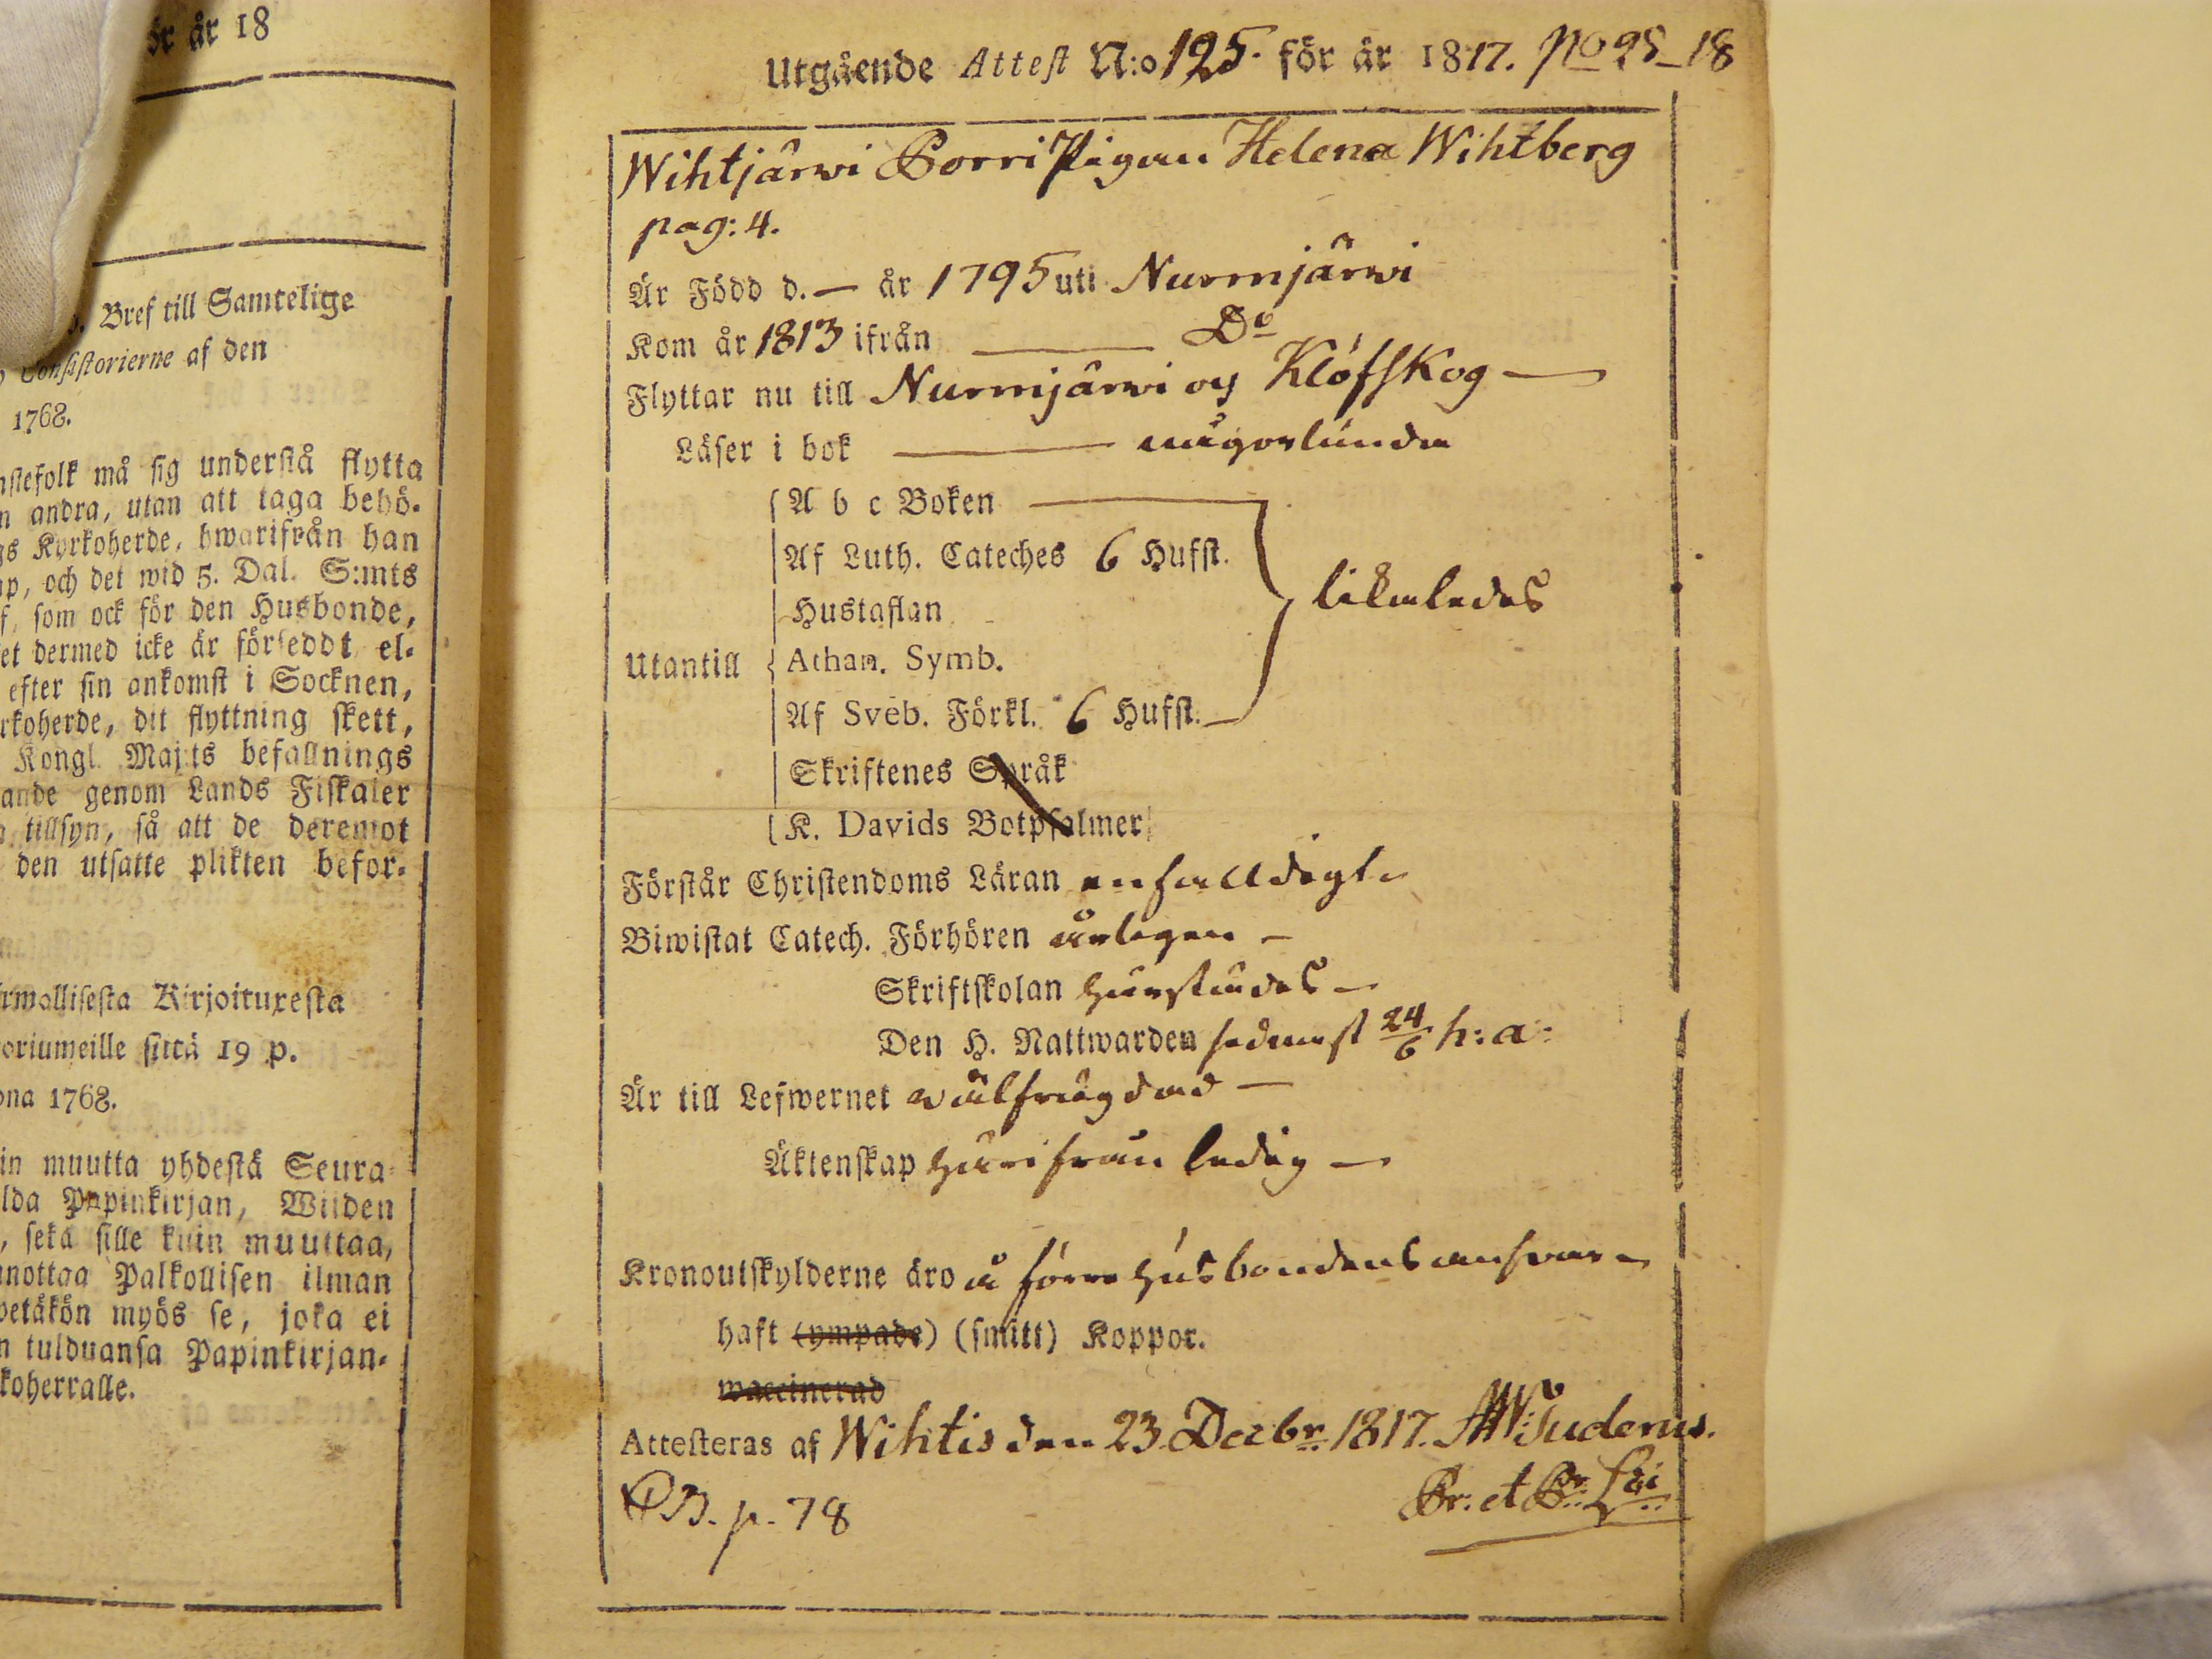 ör år 18
Bref till Samtelige
Consistorierne af den
1768.
nstefolk må sig understå flytta
n andra, utan att taga behö-
gs Kyrkoherde, hwarifrån han
ap, och det wid 5. Dal. S:mts
f, som ock för den Husbonde,
et dermed icke är försedd t el-
efter sin ankomst i Socknen,
rkoherde, dit flyttning skett,
Kongl. Maj:ts befallnings
ande genom Lands Fiskaler
a tillsyn, så att de deremot
den utsatte plikten befor-
rmollisesta Kirjoituxesta
oriumeille siitä 19 p.
ona 1768.
in muutta yhdestä Seura-
lda Papinkirjan, Wiiden
, sekä sille kuin muuttaa,
nnottaa Palkollisen ilman
wetäkön myös se, joka ei
n tulduansa Papinkirjan-
koherralle.
Utgående Attest N:o 125. för år 1817. No 95_18
Wihtjärwi Borri Pigan Helena Wihtberg
pag: 4.
Är Född d. — år 1795 uti Nurmjärwi
Kom år 1813 ifrån — Do
Flyttar nu till Nurmjärwi oy Klöfskog —
Läser i bok — någorlunda
A b c Boken —
Af Luth. Cateches 6 Hufst.
Hustaflan likaledes
Utantill Athan. Symb.
Af Sveb. Förkl. 6 Hufst. —
Skriftenes Språk
K. Davids Botpsalmer
Förstår Christendoms Läran enfalldigt
Biwistat Catech. Förhören årligen —
Skriftskolan hwarstädes —
Den H. Nattwarden sednast 24/6 h: a:
Är till Lefwernet wälfrägdad —
Äktenskap härifrån ledig —
Kronoutskylderne äro å förre husbondens answar
haft (ympade) (smitt) Koppor.
waccinerad
Attesteras af Wihtis den 23. Decbr. 1817. Sudenus.
p. 78
Pr. et Pr.